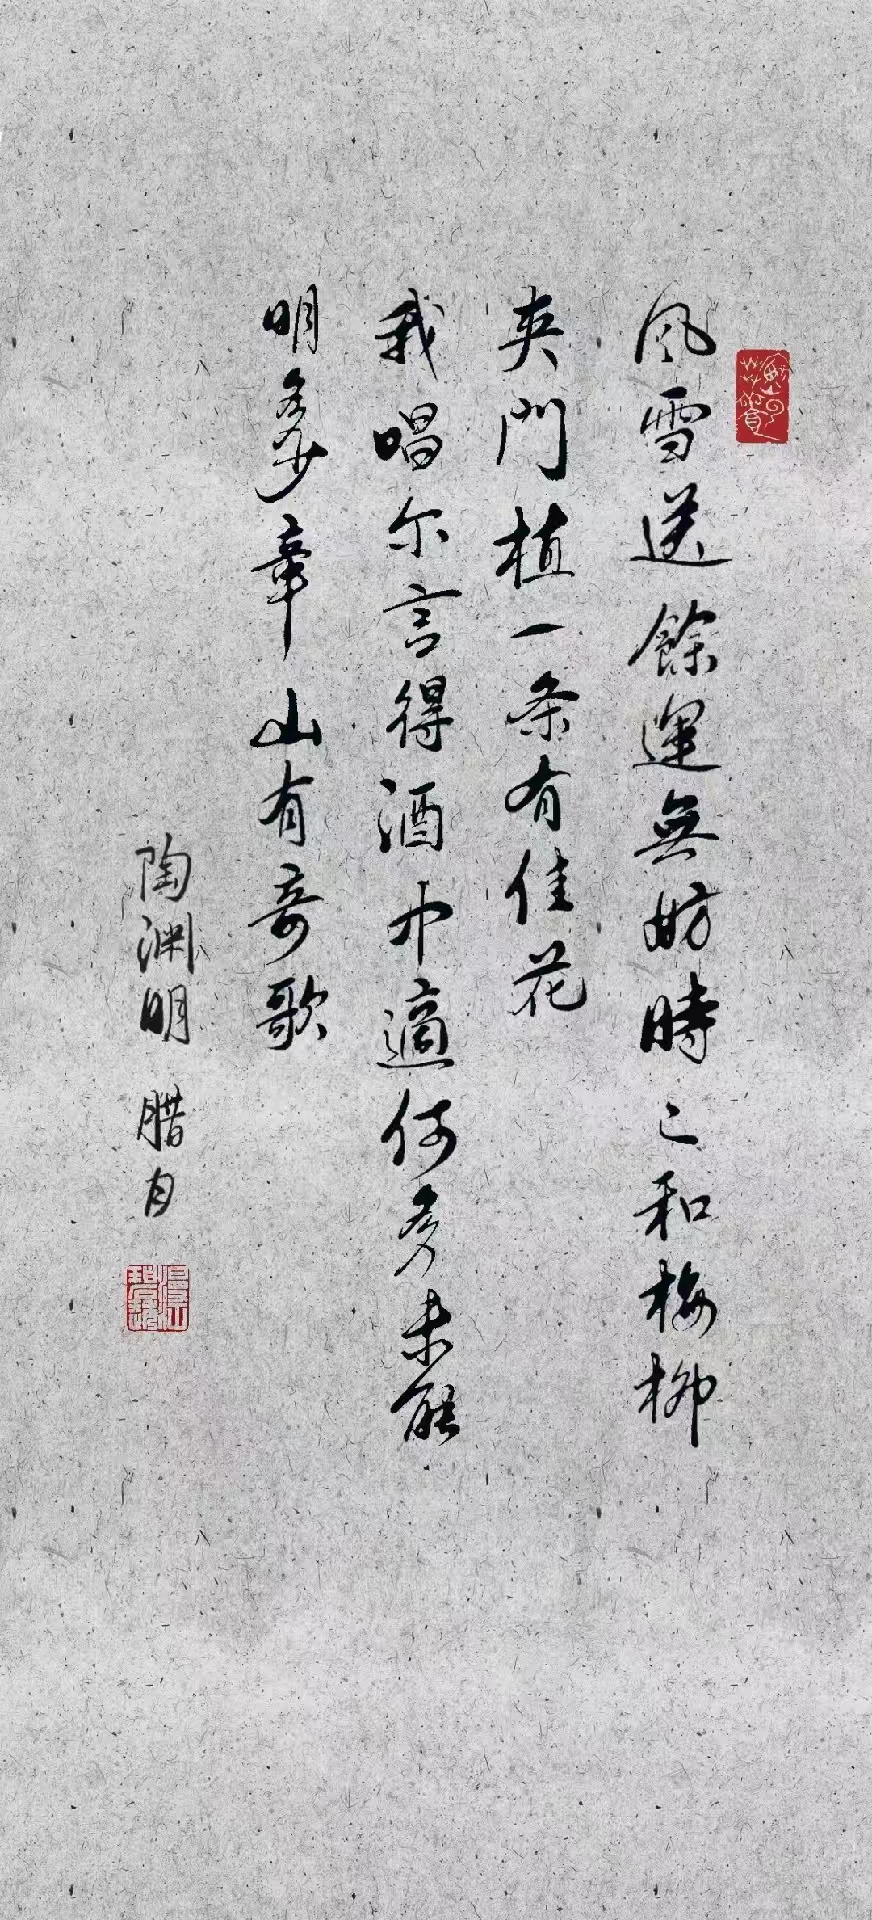 風雪送餘運無妨時〻和梅柳
夾門植一条有佳花
我唱尔言得酒中適何多未能
明多少章山有奇歌
陶渊明 腊月